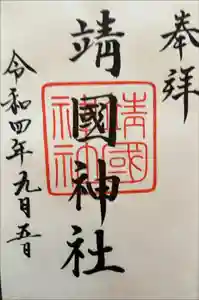 奉拝
靖國神社
靖國神社
令和四年九月五日